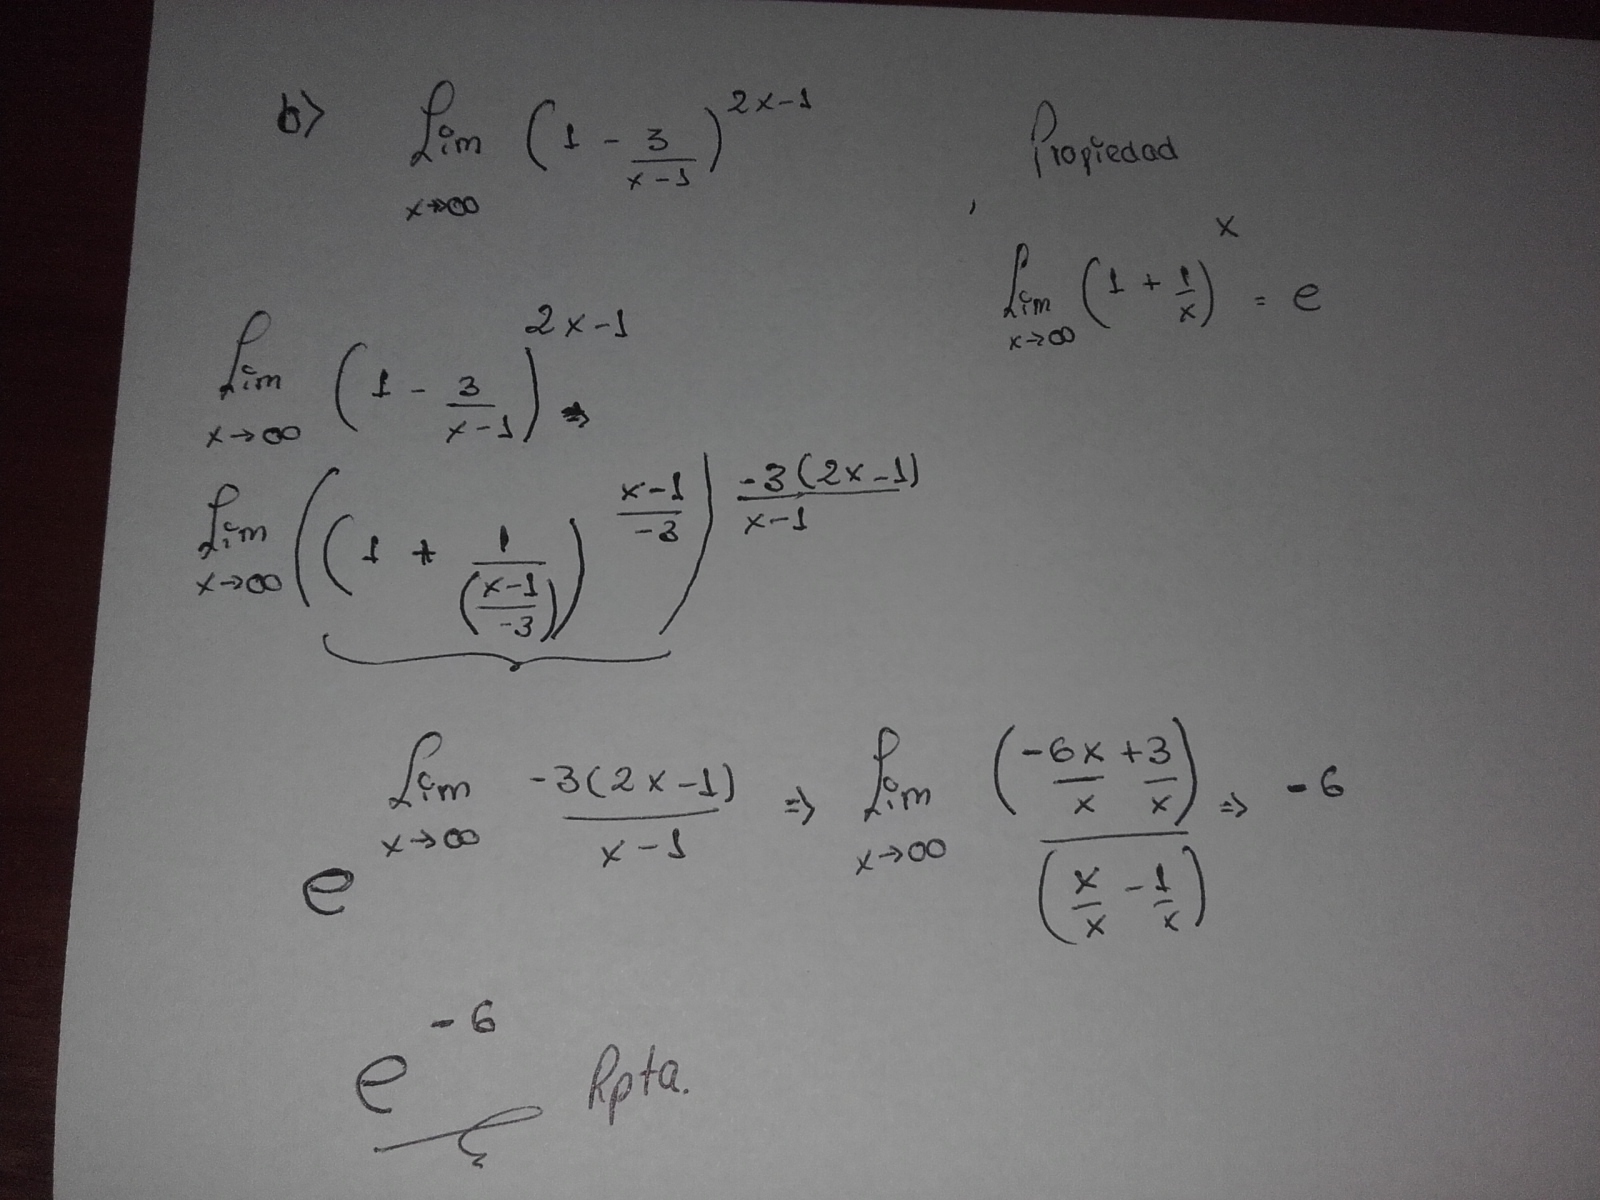 b) Lim x→∞ (1 - 3/(x-1))^(2x-1)
Propiedad
Lim x→∞ (1 + 1/x)^x = e
Lim x→∞ (1 - 3/(x-1))^(2x-1) ⇒
Lim x→∞ ((1 + 1/((x-1)/-3))^((x-1)/-3))^(-3(2x-1)/(x-1))
e^(Lim x→∞ -3(2x-1)/(x-1)) ⇒ Lim x→∞ (-6x/x + 3/x)/(x/x - 1/x) ⇒ -6
e^-6 Rpta.